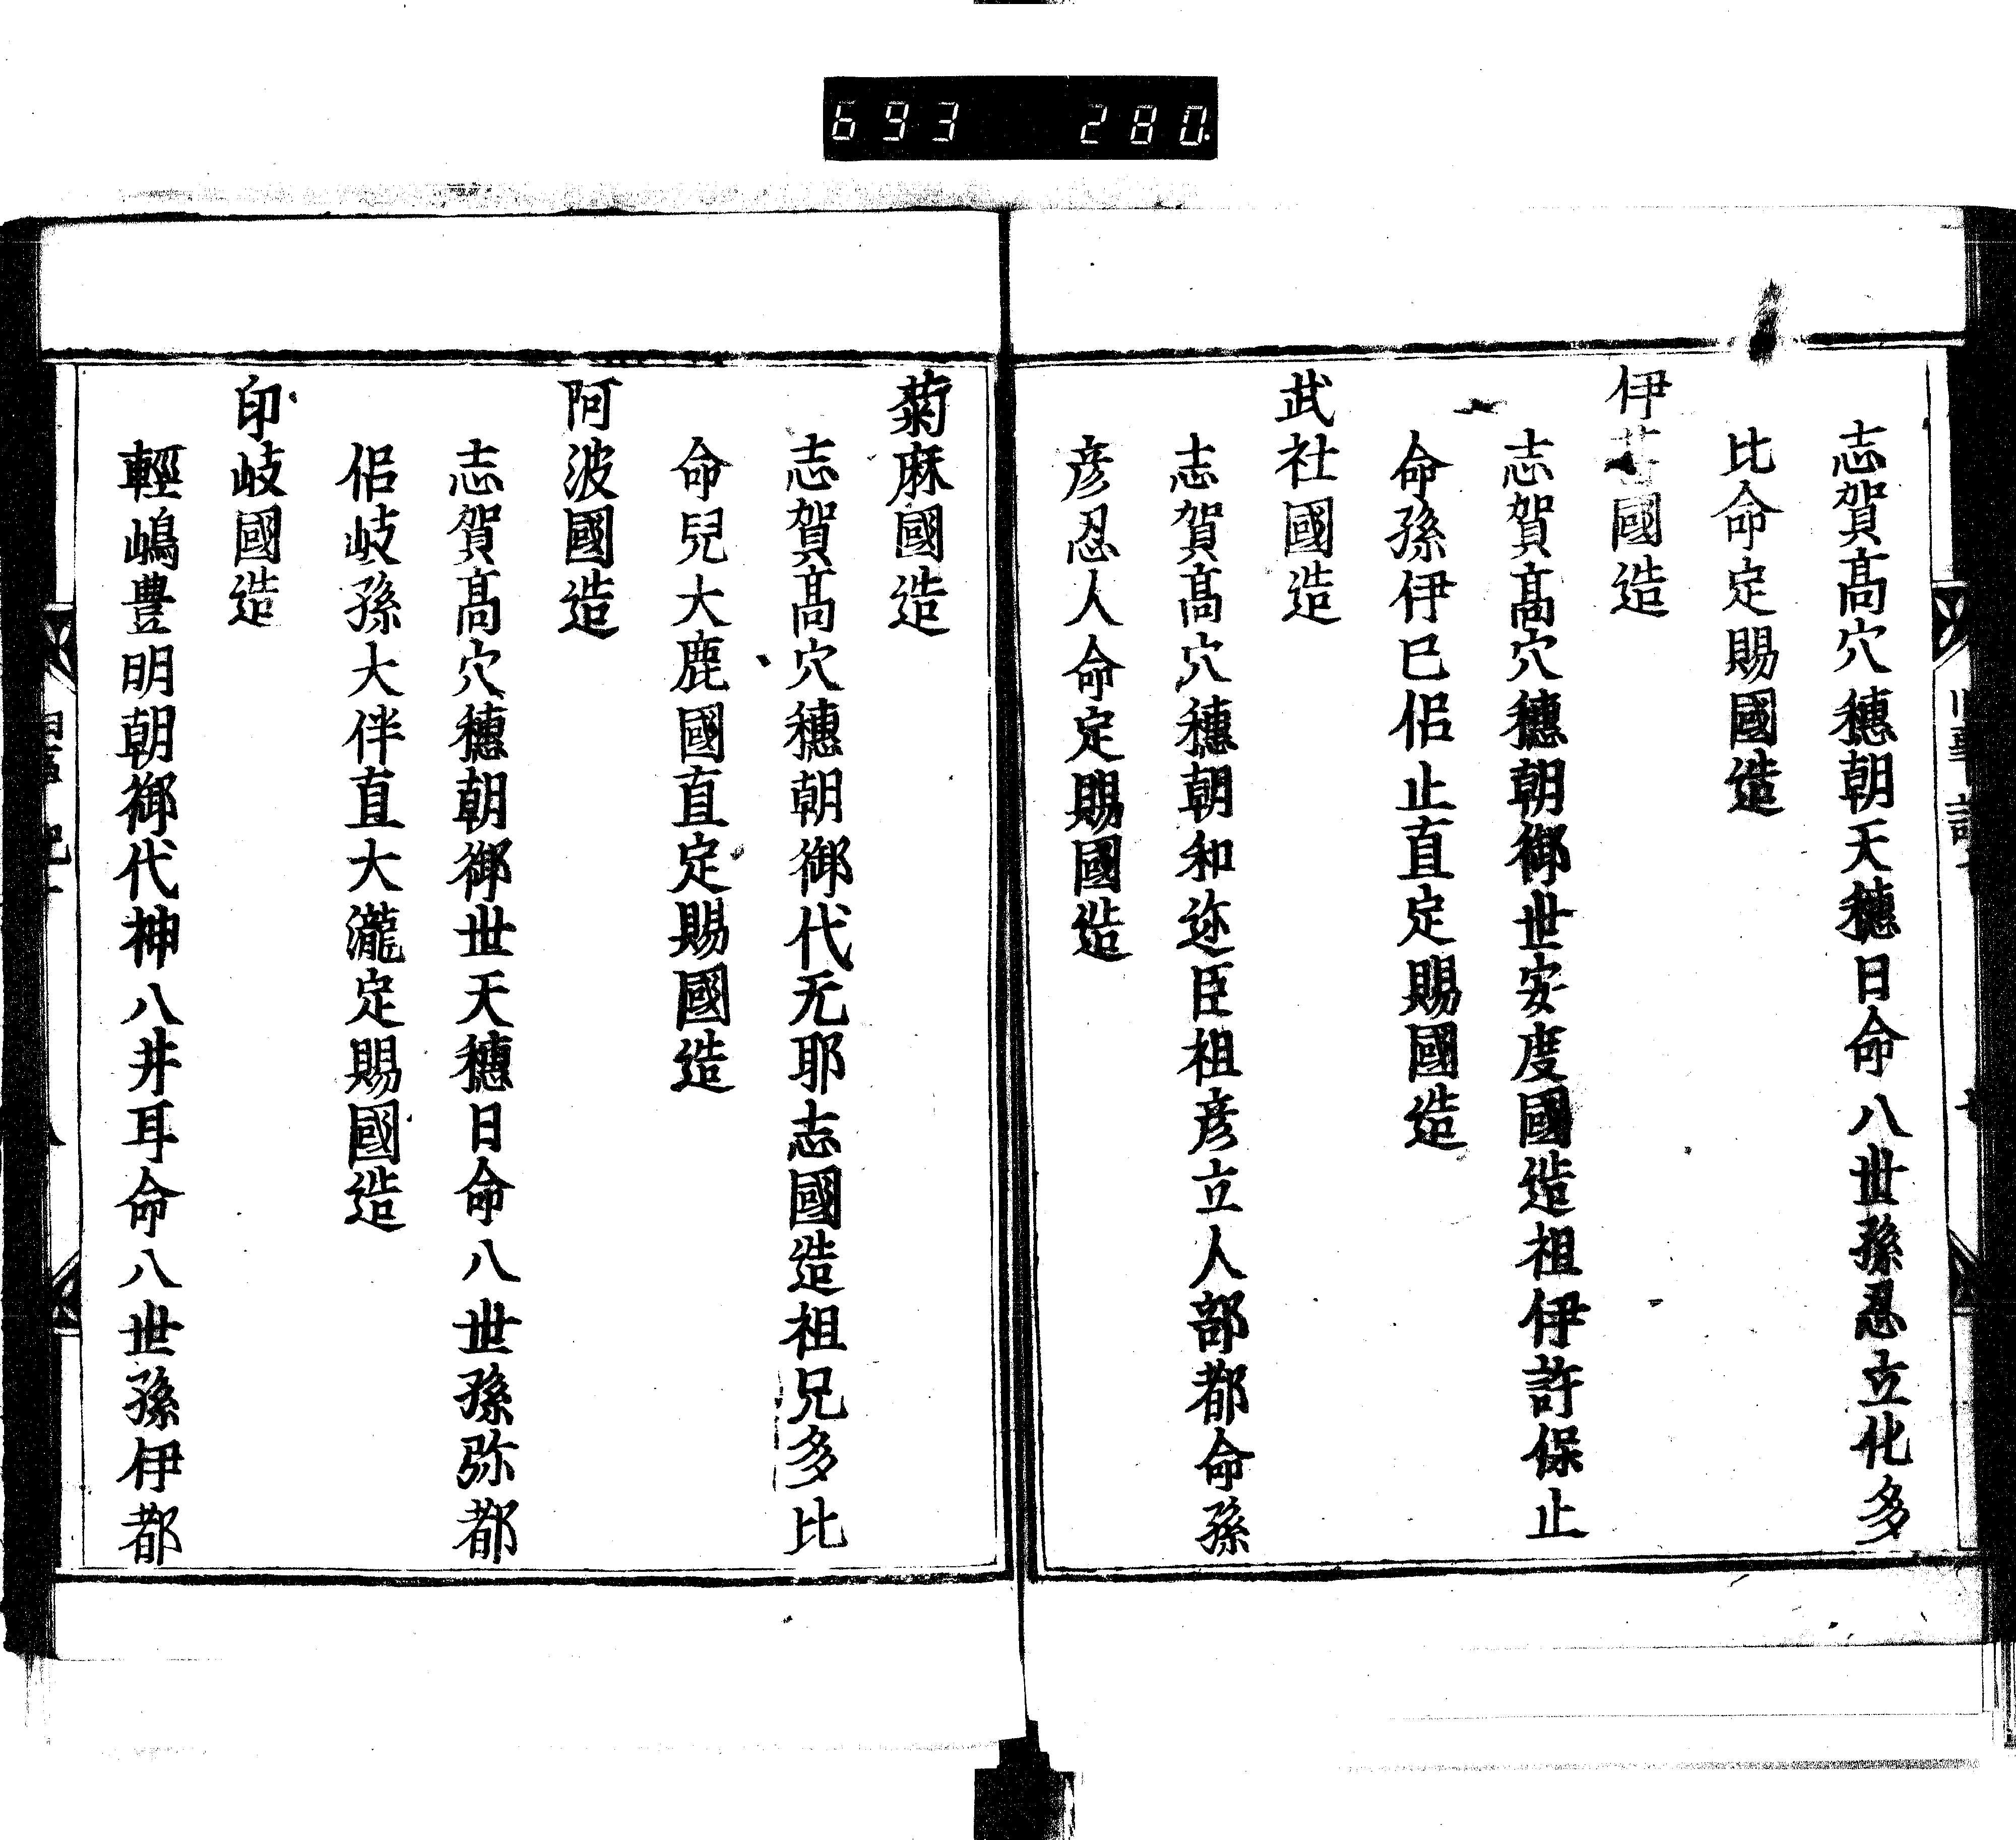 693 280
志賀髙穴穗朝天穗日命八世孫忍立化多
比命定賜國造
伊國造
志賀髙穴穗朝御世安度國造祖伊許保止
命孫伊巳侶止直定賜國造
武社國造
志賀髙穴穗朝和迩臣祖彦立人部都命孫
彦忍人命定賜國造
菊麻國造
志賀髙穴穗朝御代无耶志國造祖兄多比
命兒大鹿國直定賜國造
阿波國造
志賀髙穴穗朝御世天穗日命八世孫弥都
侶岐孫大伴直大瀧定賜國造
印岐國造
輕嶋豊明朝御代神八井耳命八世孫伊都